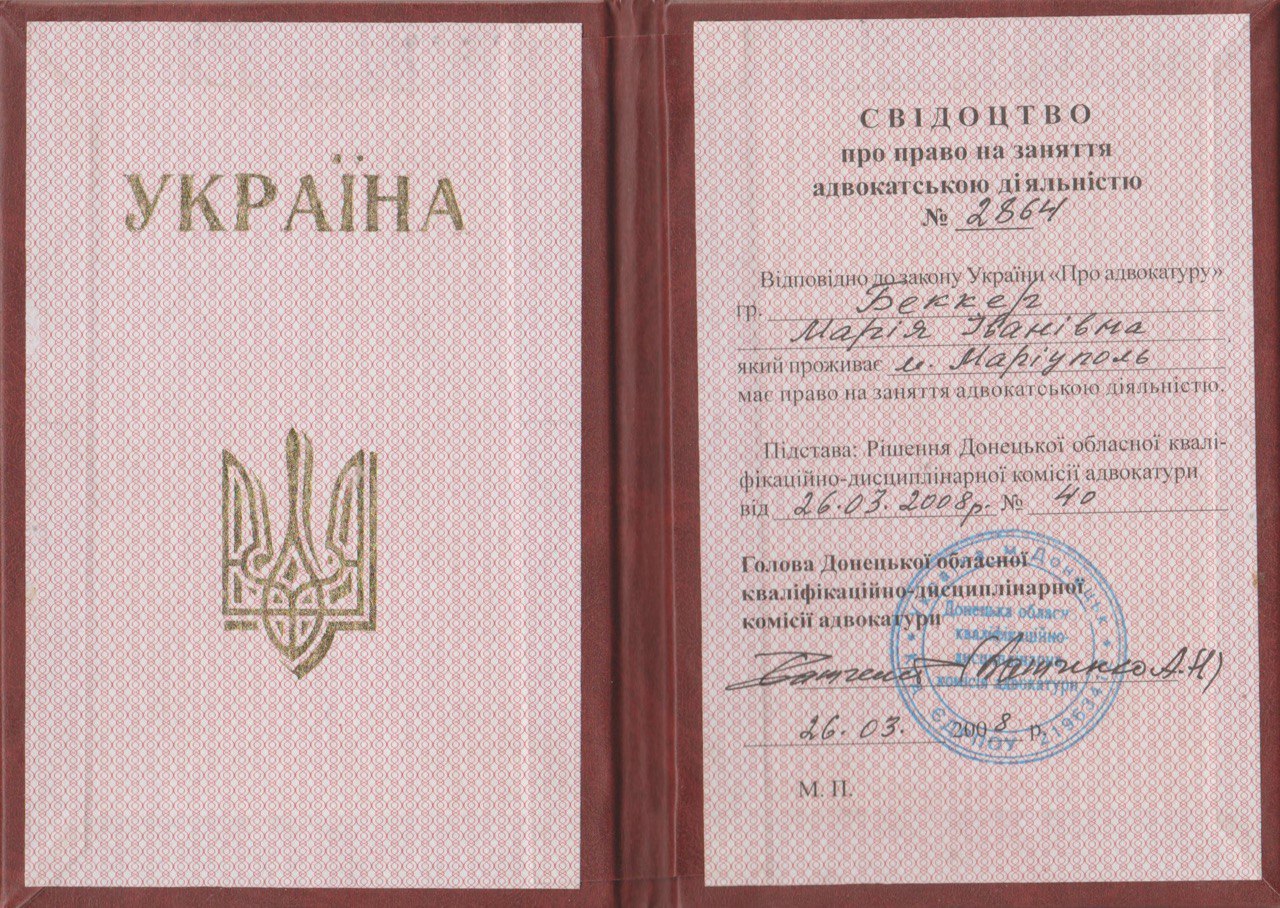 УКРАЇНА
СВІДОЦТВО
про право на заняття
адвокатською діяльністю
№ 2864
Відповідно до закону України «Про адвокатуру»
гр. Беккер
Марія Іванівна
який проживає м. Маріуполь
має право на заняття адвокатською діяльністю.
Підстава: Рішення Донецької обласної квалі-
фікаційно-дисциплінарної комісії адвокатури
від 26.03.2008р. № 40
Голова Донецької обласної
кваліфікаційно-дисциплінарної
комісії адвокатури
26.03. 2008 р.
М. П.
Донецька обласна
кваліфікаційно-
дисциплінарна
комісія адвокатури
м. Донецьк